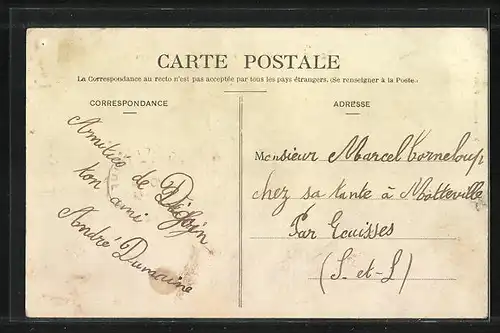 CARTE POSTALE
La Correspondance au recto n'est pas acceptée par tous les pays étrangers. (Se renseigner à la Poste.)
CORRESPONDANCE
Amitiés de Digoin
ton ami
André Dumaine
ADRESSE
Monsieur Marcel Corneloup
chez sa tante à Motteville
Par Ecuisses
(S.-et-L)